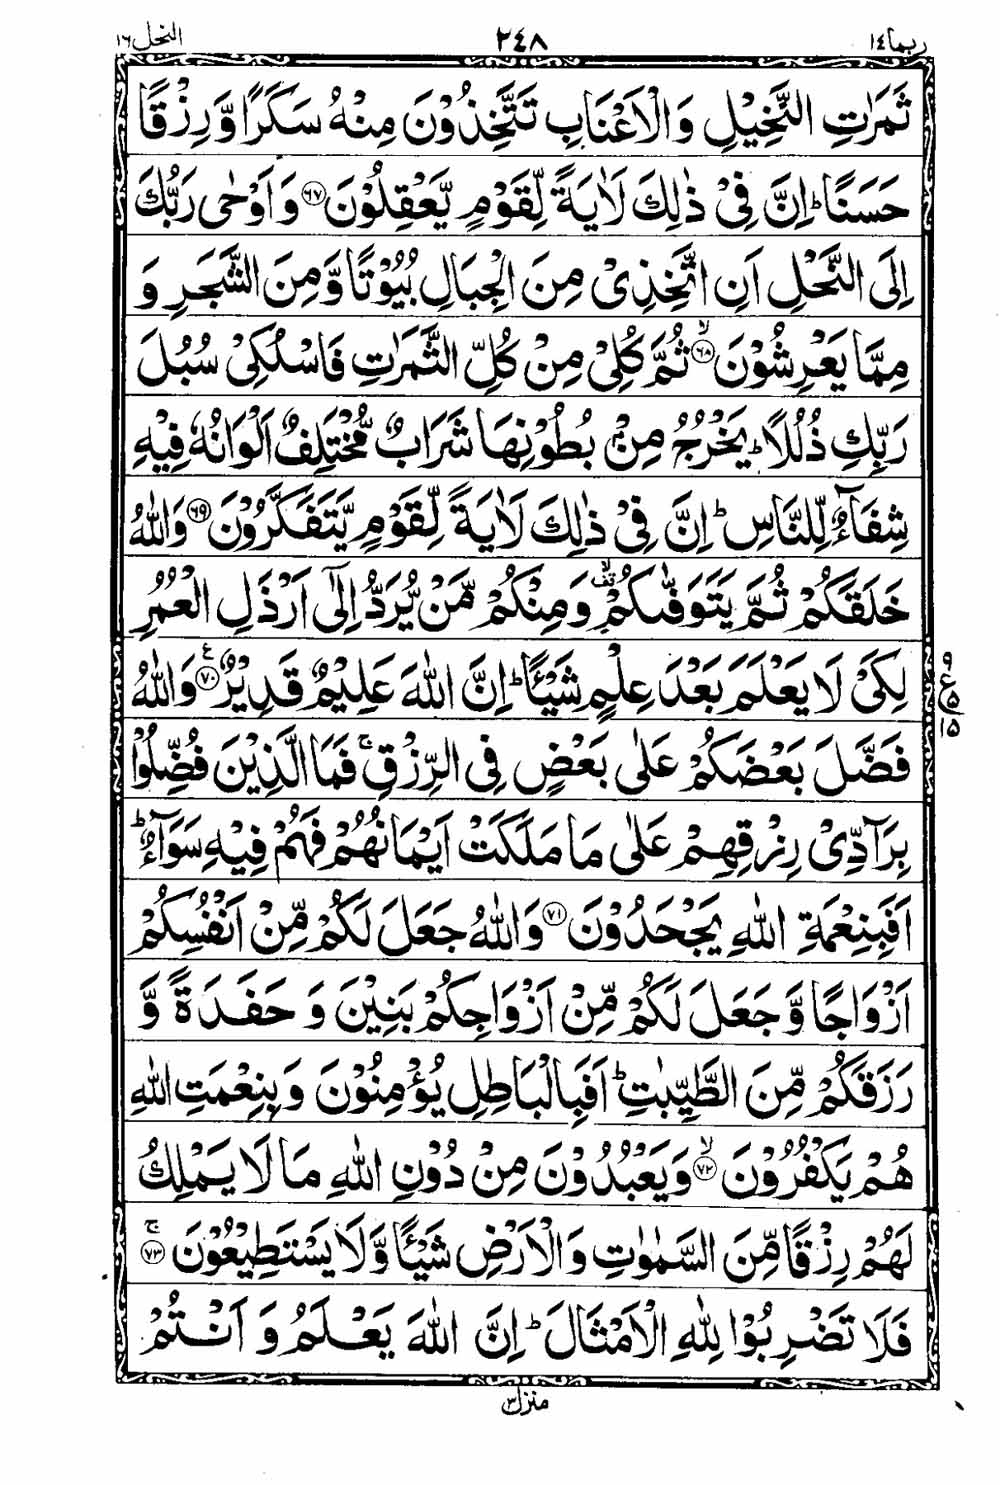 ربما ١٤ ٢٤٨ النحل ١٦
ثَمَرٰتِ النَّخِيْلِ وَالْاَعْنَابِ تَتَّخِذُوْنَ مِنْهُ سَكَرًا وَّرِزْقًا
حَسَنًا ؕ اِنَّ فِىْ ذٰلِكَ لَاٰيَةً لِّقَوْمٍ يَّعْقِلُوْنَ ﴿٦٧﴾ وَاَوْحٰى رَبُّكَ
اِلَى النَّحْلِ اَنِ اتَّخِذِىْ مِنَ الْجِبَالِ بُيُوْتًا وَّمِنَ الشَّجَرِ وَ
مِمَّا يَعْرِشُوْنَ ۙ﴿٦٨﴾ ثُمَّ كُلِىْ مِنْ كُلِّ الثَّمَرٰتِ فَاسْلُكِىْ سُبُلَ
رَبِّكِ ذُلُلًا ؕ يَخْرُجُ مِنْۢ بُطُوْنِهَا شَرَابٌ مُّخْتَلِفٌ اَلْوَانُهٗ فِيْهِ
شِفَآءٌ لِّلنَّاسِ ؕ اِنَّ فِىْ ذٰلِكَ لَاٰيَةً لِّقَوْمٍ يَّتَفَكَّرُوْنَ ﴿٦٩﴾ وَاللّٰهُ
خَلَقَكُمْ ثُمَّ يَتَوَفّٰٮكُمْ قف وَمِنْكُمْ مَّنْ يُّرَدُّ اِلٰٓى اَرْذَلِ الْعُمُرِ
لِكَىْ لَا يَعْلَمَ بَعْدَ عِلْمٍ شَيْــًٔا ؕ اِنَّ اللّٰهَ عَلِيْمٌ قَدِيْرٌ ﴿٧٠﴾ ع وَاللّٰهُ
٩ ع ٥ ١٥
فَضَّلَ بَعْضَكُمْ عَلٰى بَعْضٍ فِى الرِّزْقِ ۚ فَمَا الَّذِيْنَ فُضِّلُوْا
بِرَآدِّىْ رِزْقِهِمْ عَلٰى مَا مَلَكَتْ اَيْمَانُهُمْ فَهُمْ فِيْهِ سَوَآءٌ ؕ
اَفَبِنِعْمَةِ اللّٰهِ يَجْحَدُوْنَ ﴿٧١﴾ وَاللّٰهُ جَعَلَ لَكُمْ مِّنْ اَنْفُسِكُمْ
اَزْوَاجًا وَّجَعَلَ لَكُمْ مِّنْ اَزْوَاجِكُمْ بَنِيْنَ وَحَفَدَةً وَّ
رَزَقَكُمْ مِّنَ الطَّيِّبٰتِ ؕ اَفَبِالْبَاطِلِ يُؤْمِنُوْنَ وَبِنِعْمَتِ اللّٰهِ
هُمْ يَكْفُرُوْنَ ۙ﴿٧٢﴾ وَيَعْبُدُوْنَ مِنْ دُوْنِ اللّٰهِ مَا لَا يَمْلِكُ
لَهُمْ رِزْقًا مِّنَ السَّمٰوٰتِ وَالْاَرْضِ شَيْــًٔا وَّلَا يَسْتَطِيْعُوْنَ ۚ﴿٧٣﴾
فَلَا تَضْرِبُوْا لِلّٰهِ الْاَمْثَالَ ؕ اِنَّ اللّٰهَ يَعْلَمُ وَاَنْتُمْ
منزل ٣